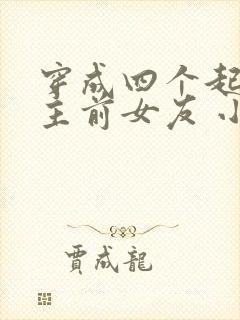 穿成四个起
主前女友小
賈成龍